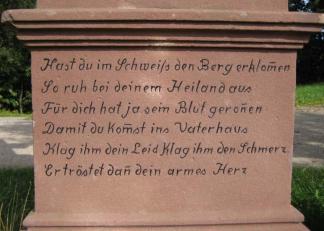 Hast du im Schweiß den Berg erklom̄en
So ruh bei deinem Heiland aus
Für dich hat ja sein Blut geron̄en
Damit du kom̄st ins Vaterhaus
Klag ihm dein Leid Klag ihm den Schmerz
Er tröstet dan̄ dein armes Herz